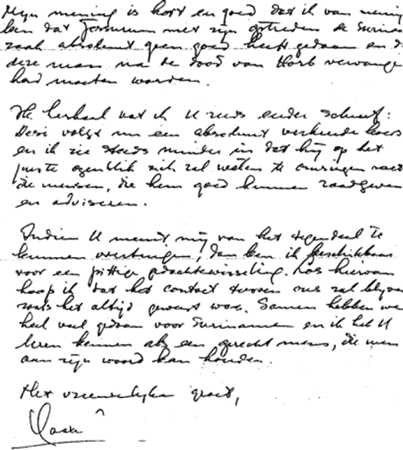 Mijn mening is kort en goed dat ik van mening
ben dat met zijn optreden de Surinaamse
zaak absoluut geen goed heeft gedaan en dat
deze man na de dood van Horb vervangen
had moeten worden.
Ik herhaal wat ik U reeds eerder schreef:
Desi volgt nu een absoluut verkeerde koers
en ik zie steeds minder in dat hij op het
juiste ogenblik zich zal weten te omringen met
die mensen, die hem goed kunnen raadgeven
en adviseren.
Indien U meent mij van het tegendeel te
kunnen overtuigen, dan ben ik beschikbaar
voor een pittige gedachtewisseling. Los hiervan
hoop ik dat het contact tussen ons zal blijven
zoals het altijd geweest was. Samen hebben we
heel veel gedaan voor Suriname en ik heb U
leren kennen als een oprecht mens, die men
aan zijn woord kan houden.
Met vriendelijke groet,